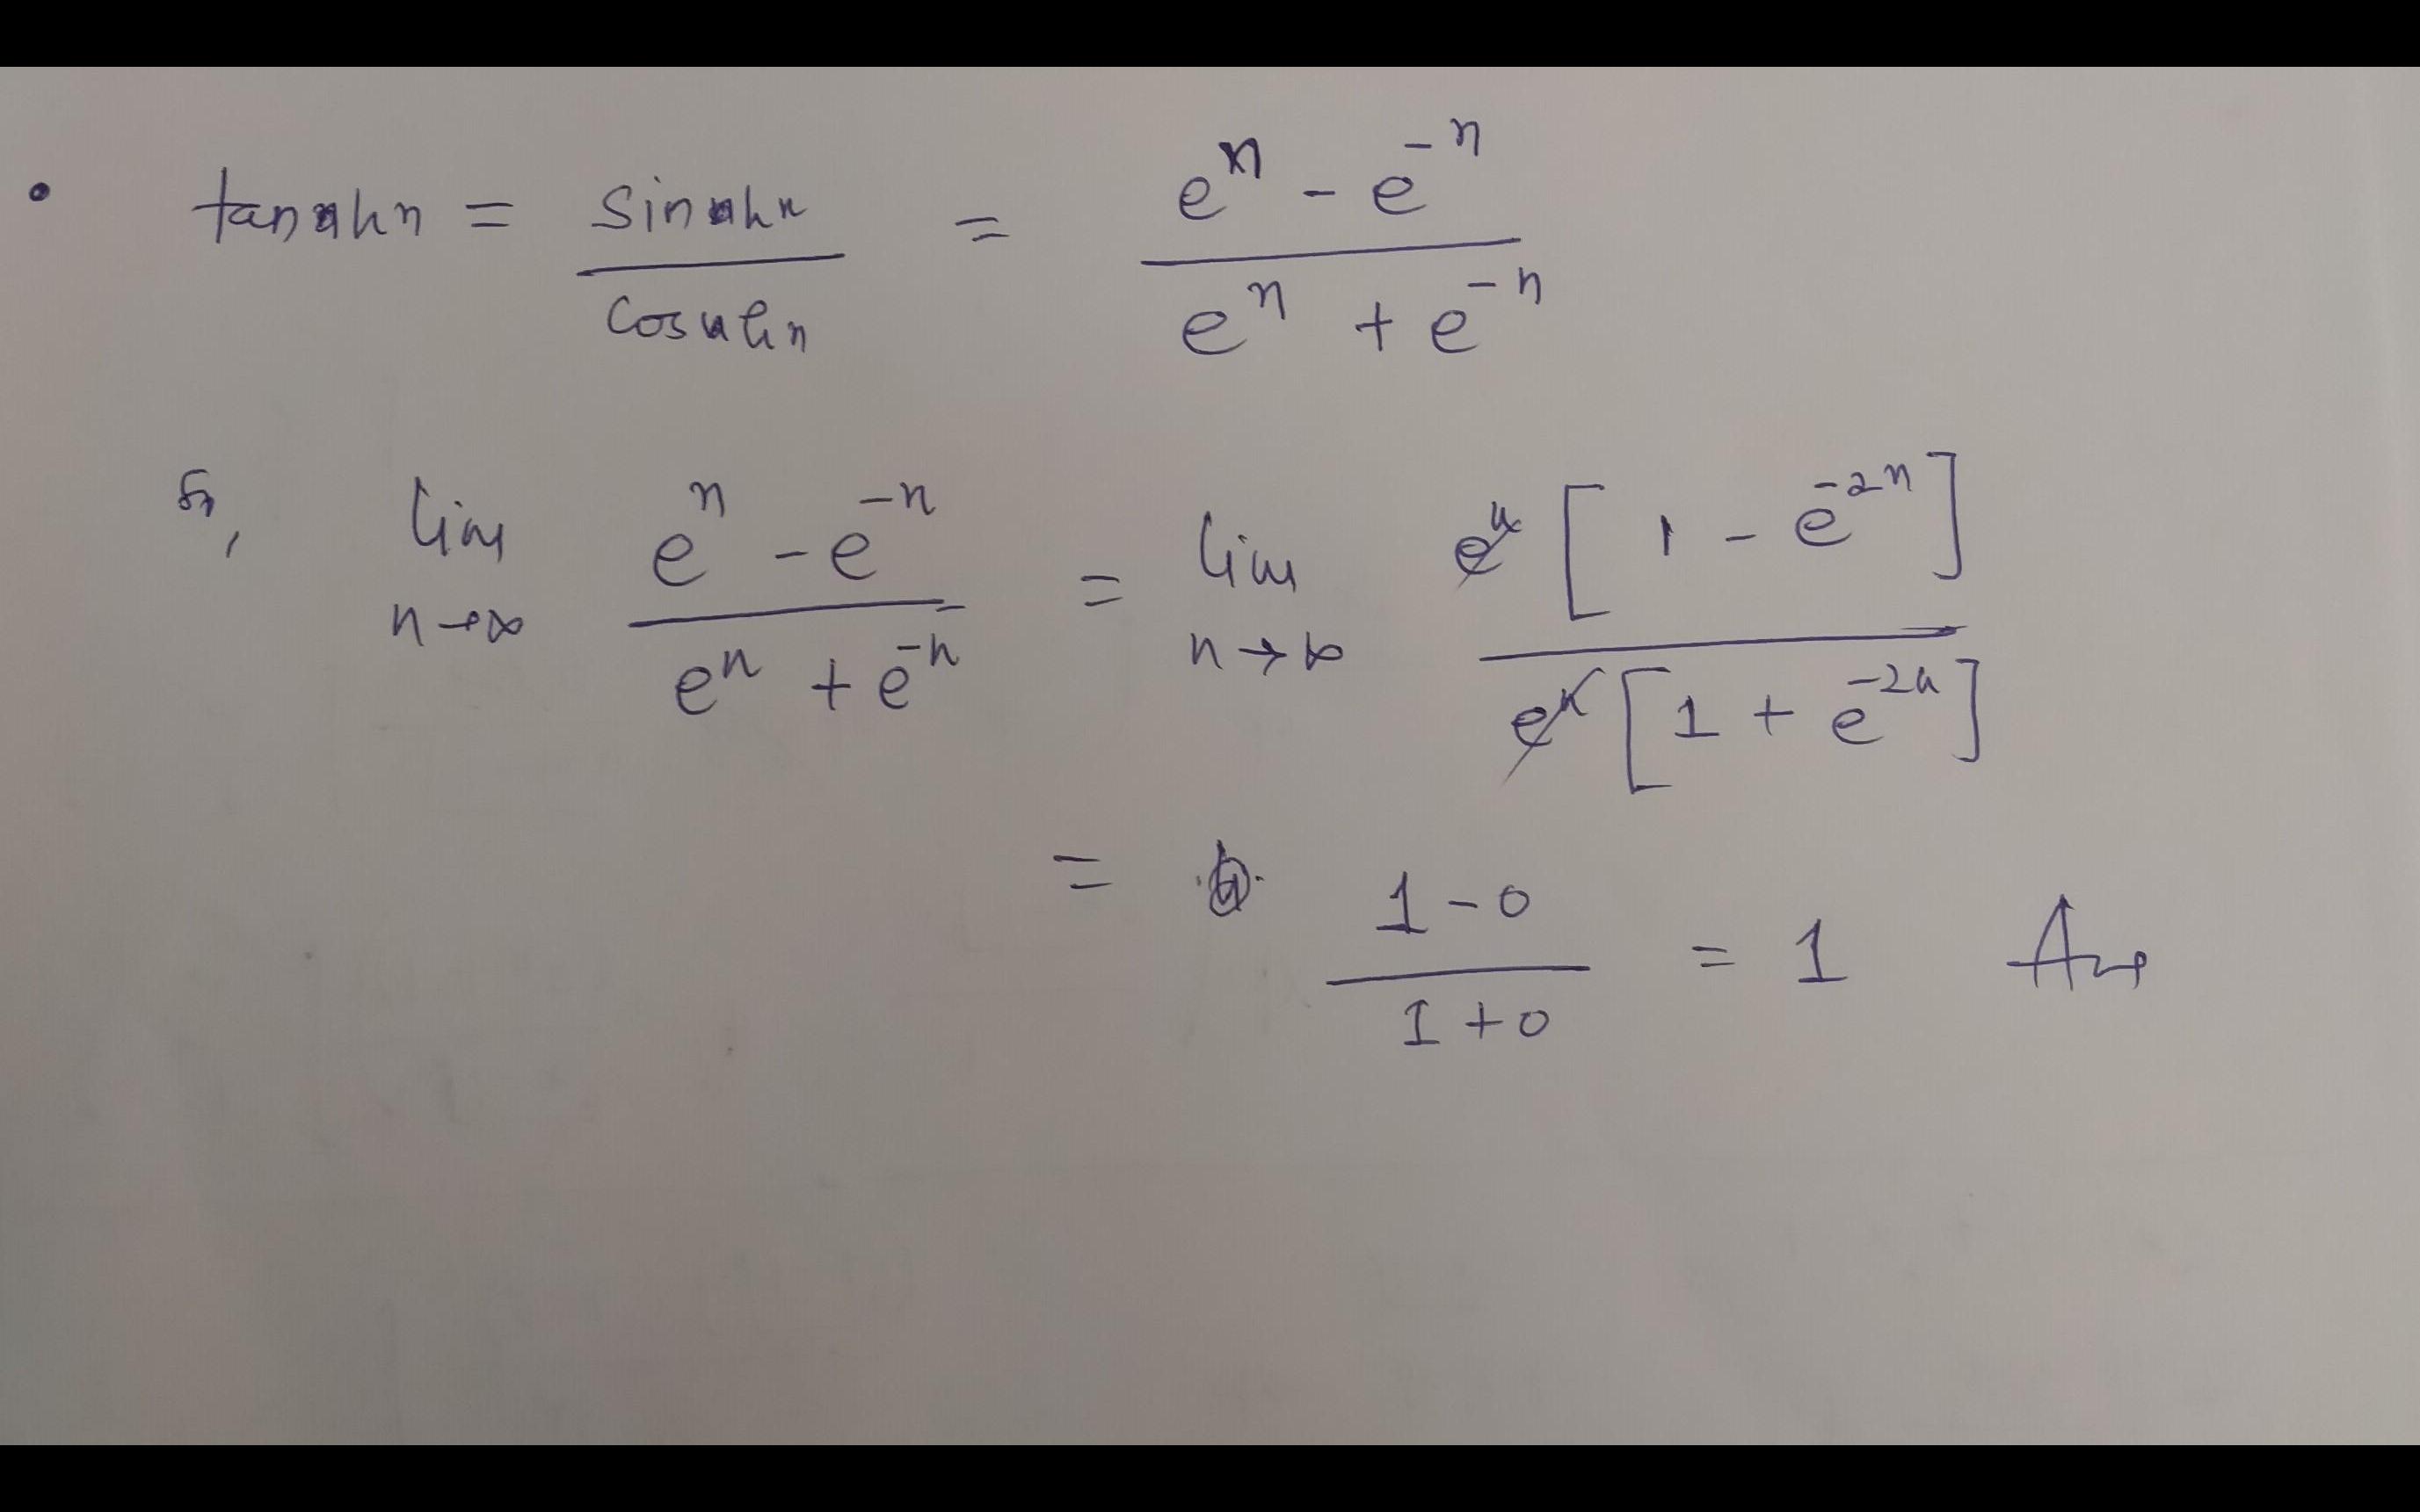 • tanhn = sinhn / coshn = e^n - e^-n / e^n + e^-n
So, lim n→∞ e^n - e^-n / e^n + e^-n = lim n→∞ e^n [1 - e^-2n] / e^n [1 + e^-2n]
= 1 - 0 / 1 + 0 = 1 Ans